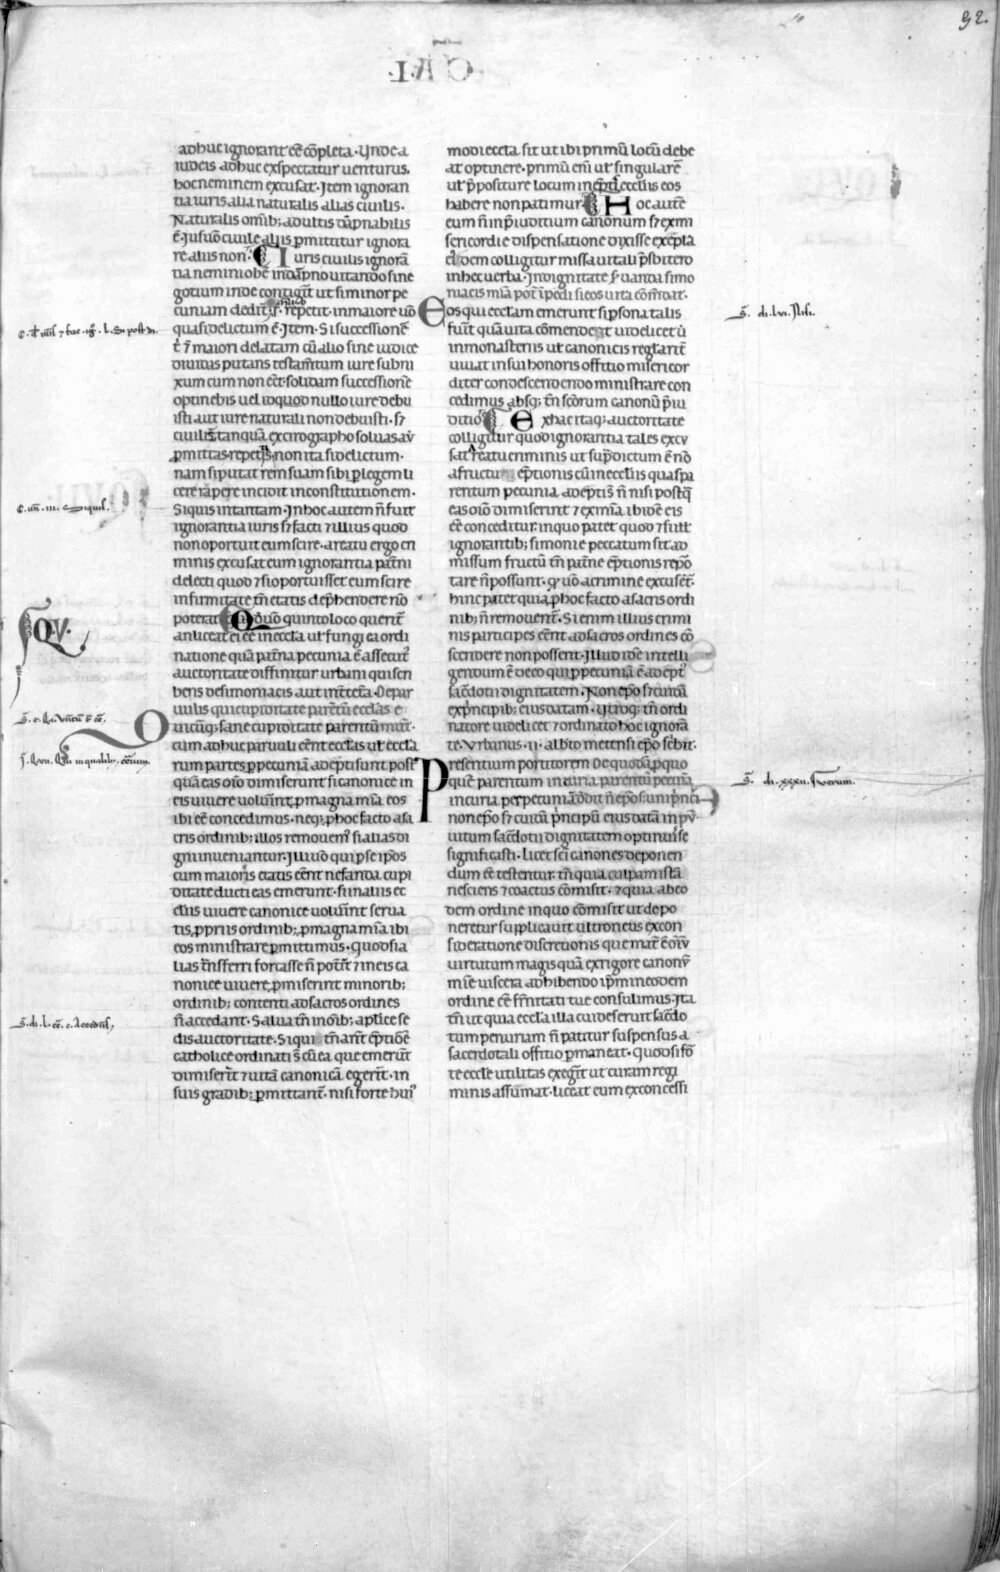 92.
C A · I ·
adhuc ignorant eē cōpleta · Unde a
iudeis adhuc exspectatur uenturus.
hoc neminem excusat · Item ignoran
tia iuris alia naturalis alia ciuilis ·
Naturalis omīb; adultis dāpnabilis
ē · Ius uō ciuile aliis pmittitur ignora
re aliis non · Iuris ciuilis ignorā
tia nemini obē in dāpno uitando si ne
gotium inde contigit ut si minor pe
cuniam dedit repetit · in maiore uō
quasi delictum ē · Item · Si successionē
maiori delatam cū alio sine iudice
diuidas putans testamtum iure subni
xum cum non eēt · solidam successionē
optinebis uel id quod nullo iure debu
isti aut iure naturali non debuisti · s;
ciuilit tanquā ex cirographo soluas aū
pmittas · repetis non ita si delictum ·
nam si putat rem suam sibi p legem li
cere rapere incidit in constitutionem ·
Siquis in tantam · In hoc autem ñ fuit
ignorantia iuris s; facti illius quod
non oportuit eum scire · a reatu ergo cri
minis excusat eum ignorantia patni
delicti quod si oportuisset eum scire
infirmitate tñ etatis dephendere nō
poterat · Quod uō quinto loco querit
an liceat ei eē in eccla ut fungi ea ordi
natione quā patna pecunia ē assecut
auctoritate diffinitur urbani qui scri
bens de simoniacis aut in · Depar
uulis qui cupiditate parētū ecclas e
Quicūq; sane cupiditate parentum
cum adhuc paruuli eēnt ecclas ut eccla
rum partes p pecuniā adepti sunt post
quā eas oīo dimiserunt si canonice in
eis uiuere uoluīnt p magna mīa eos
ibi eē concedimus · neq; p hoc facto a sa
cris ordinib; illos remouem si alias di
gni inueniantur · Illi uō qui p se ipōs
cum maioris etatis eēnt nefanda cupi
ditate ducti eas emerunt · si in aliis ec
cliis uiuere canonice uoluīnt serua
tis ppriis ordinib; p magna mīa ibi
eos ministrare pmittimus · Quod si a
lias tnsferri fortasse ñ potīt in eis ca
nonice uiuere pmiserint minorib;
ordinib; contenti ad sacros ordines
ñ accedant · Salua tñ in oīb; aplice se
dis auctoritate · Si qui tñ ant eptionē
catholice ordinati s cū ea que emerūt
dimiserīt uitā canonicā egerīt · in
suis gradib; pmittant · nisi forte hui
modi eccla sit ut ibi primū locū debe
at optinere · primū enī ut singularē
ut ppositure locum in eptis ecclsiis eos
habere non patimur · Hoc autē
cum ñ in piuditium canonum s; ex mi
sericordie dispensatione dixisse ex epla
eidem colligitur missa uitali psbitero
in hec uerba · Indignitate seruanda simo
niacis mīa pot īpedi si eos uita cōmdat ·
Eos qui ecclam emerunt si psona talis
fuīt quā uita cōmendet ut uidelicet ū
in monasteriis ut canonicis reglarit
uiuat in sui honoris offitio misericor
diter condescendendo ministrare con
cedimus absq; tñ scōrum canonū piu
ditio · Ex hac itaq; auctoritate
colligitur quod ignorantia tales excu
sat reatu criminis ut supdictum ē nō
a fructu eptionis cū in ecclsiis quas pa
rentum pecunia adeptis ñ nisi postq
eas oīo dimiserint ex mīa ibidē eis
eē conceditur · in quo patet quod fuīt
ignorantib; simonie peccatum sit ad
missum fructū tñ patne eptionis repo
tare ñ possunt · q uō a crimine excuset
hinc patet quia p hoc facto a sacris ordi
nib; ñ remouent · Si enim illius crimi
nis participes eēnt ad sacros ordines cō
scendere non possent · Illud idē intelli
gendum ē de eo qui p pecuniā ē adept
sacdotii dignitatem · Non epo s; cuidā
ex principib; eius datam · Utroq; tñ ordi
natore uidelicet ordinato hoc ignorā
te · Urbanus · ii · albto metensi epo scbit ·
Presentium portitorem de quo dā p quo
que parentum incuria parentū pecunia
incuria per pecuniā odit ñ epo s; uni pnci
non epo s; cuidā principū eius data in pu
uitum sacdotii dignitatem optinuisse
significasti · Licet sci canones deponen
dum eē testentur · tñ quia culpam istā
nesciens coactus cōmisit · quia ab eo
dem ordine in quo cōmisit ut depo
neretur supplicauit ultroneus ex con
sideratione discretionis que mat ē oīū
uirtutum magis quā ex rigore canonū
mīe uiscera adhibendo ipm in eodem
ordine eē frnitati tue consulimus · Ita
tñ ut quia eccla illa cui deseruit sacdo
tum penuriam ñ patitur suspensus a
sacerdotali offitio pmaneat · Quod si fō
te eccle utilitas exegīt ut curam regi
minis assūmat · liceat eum ex concessi
QV.
s̄. di. lvi.
s̄. di. xxxii.